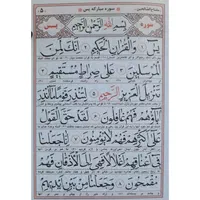 سوره مبارکه یس
سوره بسم الله الرحمن الرحیم یس
یس وَالْقُرْآنِ الْحَكِيمِ إِنَّكَ لَمِنَ
الْمُرْسَلِينَ عَلَىٰ صِرَاطٍ مُسْتَقِيمٍ
تَنْزِيلَ الْعَزِيزِ الرَّحِيمِ لِتُنْذِرَ قَوْمًا مَا أُنْذِرَ
آبَاؤُهُمْ فَهُمْ غَافِلُونَ لَقَدْ حَقَّ الْقَوْلُ
عَلَىٰ أَكْثَرِهِمْ فَهُمْ لَا يُؤْمِنُونَ إِنَّا جَعَلْنَا
فِي أَعْنَاقِهِمْ أَغْلَالًا فَهِيَ إِلَى الْأَذْقَانِ فَهُمْ
مُقْمَحُونَ وَجَعَلْنَا مِنْ بَيْنِ أَيْدِيهِمْ